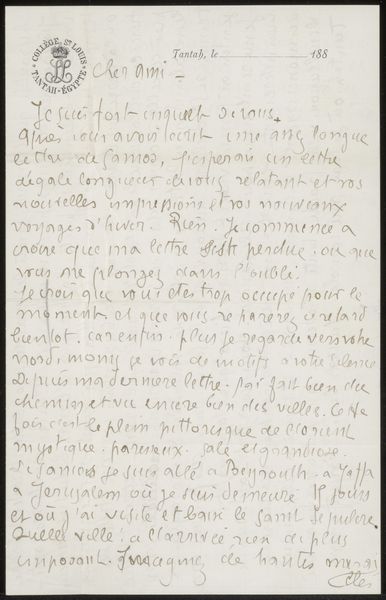 COLLÈGE St LOUIS
TANTAH-ÉGYPTE
Tantah, le 188
Cher Ami –
Je suis fort inquiet de vous.
Après vous avoir écrit une assez longue
lettre de Samos, j'espérais un lettre
d'égale longueur de vous relatant et vos
nouvelles impressions et vos nouveaux
voyages d'hiver. Rien. Je commence a
croire que ma lettre s'est perdue. ou que
vous me plongez dans l'oubli.
Je crois que vous etes trop occupé pour le
moment et que vous reparerez ce retard
bientot. car enfin. plus je regarde vers votre
nord, moins je vois de motifs a votre silence
Depuis ma derniere lettre. j'ai fait bien du
chemin et vu encore bien des villes. Cette
fois c'est le plein pittoresque de l'orient
mystique. paresseux. sale et grandiose.
De Samos je suis allé a Beyrouth. a Jaffa
a Jerusalem où je suis demeuré 15 jours
et où j'ai visité et baisé le saint sepulcre.
Quelle ville! a l'arrivée rien de plus
imposant. Imaginez de hautes murai